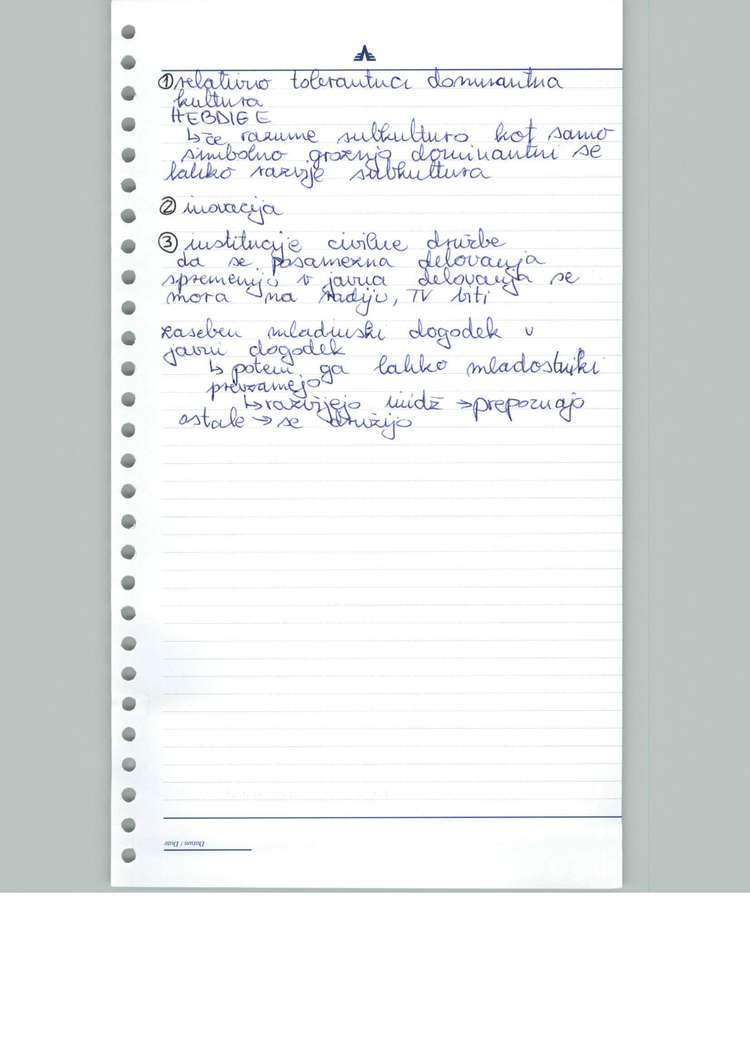 ① relativno tolerantna dominantna
kultura
HEBDIGE
↳ če razume subkulturo kot samo
simbolno grožnjo dominantni se
lahko razvije subkultura
② inovacija
③ institucije civilne družbe
da se posamezna delovanja
spremenijo v javna delovanja se
mora na radiju, TV biti
zaseben mladinski dogodek v
javni dogodek
↳ potem ga lahko mladostniki
prevzamejo
↳ razvijejo imidž → prepoznajo
ostale → se družijo
Datum / Date